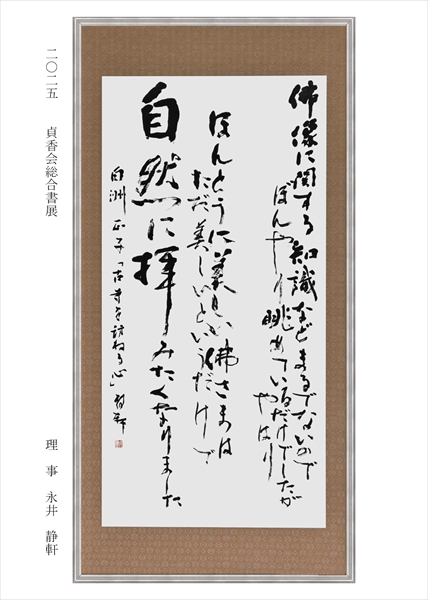 佛像に関する知識などまるでないので
ぼんやり眺めているだけでしたが
やはり
ほんとうに美しい佛さまは
ただ美しいというだけで
自然に拝みたくなりました
白洲正子「古寺を訪ねる心」静軒
二〇二五　貞香会総合書展
理事　永井　静軒